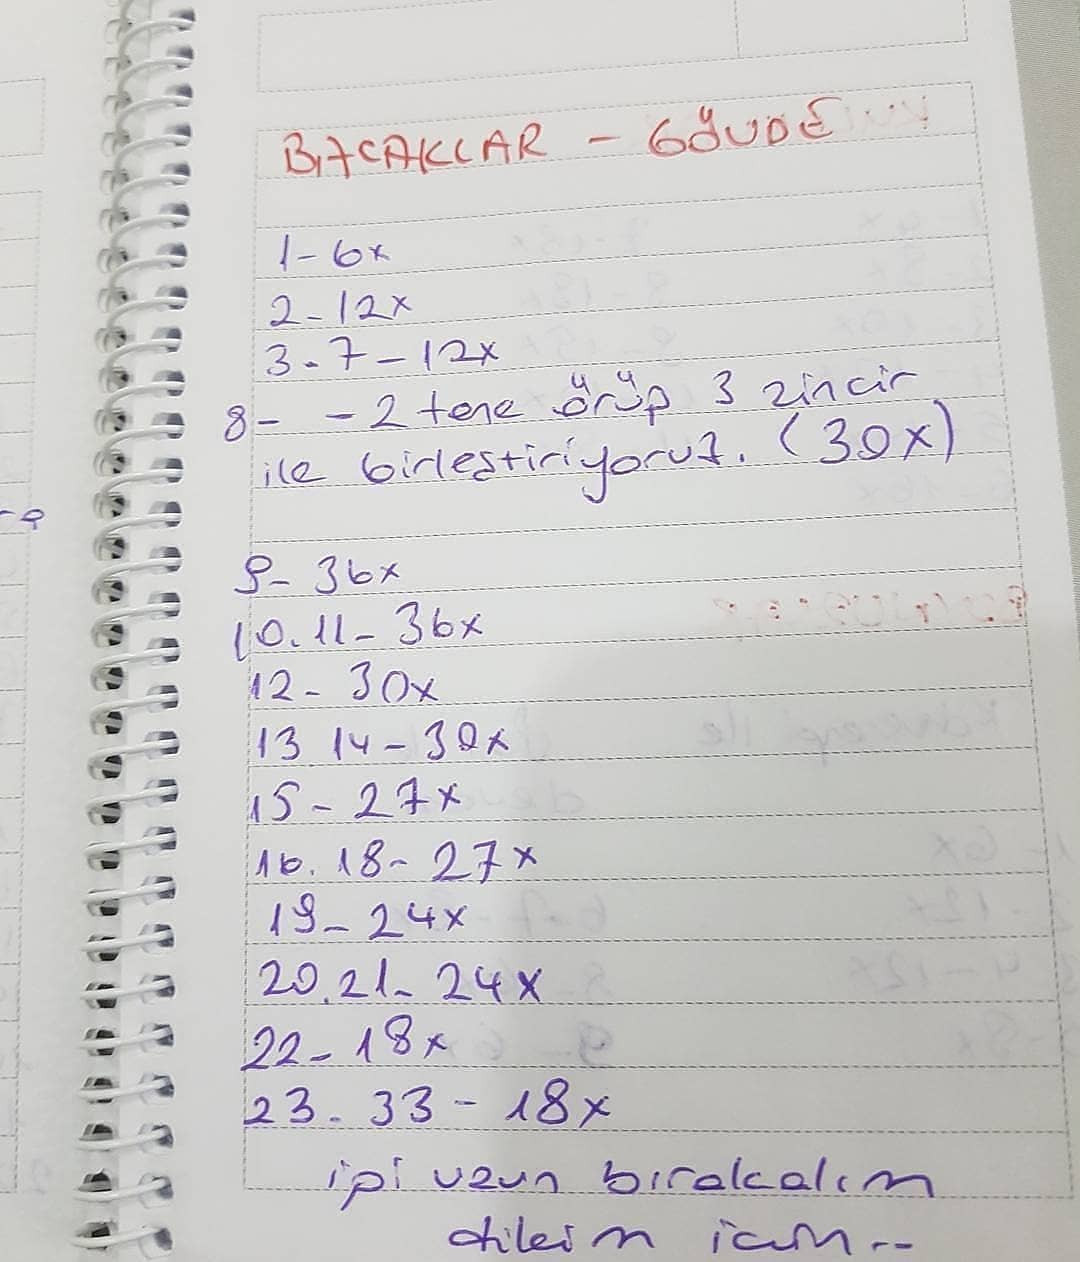 BACAKLAR - GÖVDE
1-6x
2-12x
3-7-12x
8- -2 tane örüp 3 zincir
ile birleştiriyoruz. (30x)
9-36x
10.11-36x
12-30x
13 14-30x
15-27x
16.18-27x
19-24x
20.21-24x
22-18x
23-33-18x
ipi uzun bırakalım
dikim için..